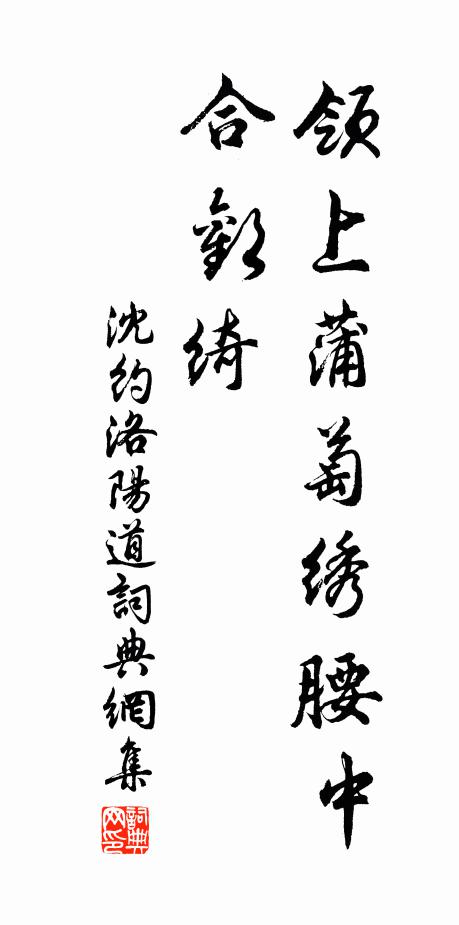 領上蒲萄绣腰中
合歡绮
沈約洛陽道詞典網集
詞典网印